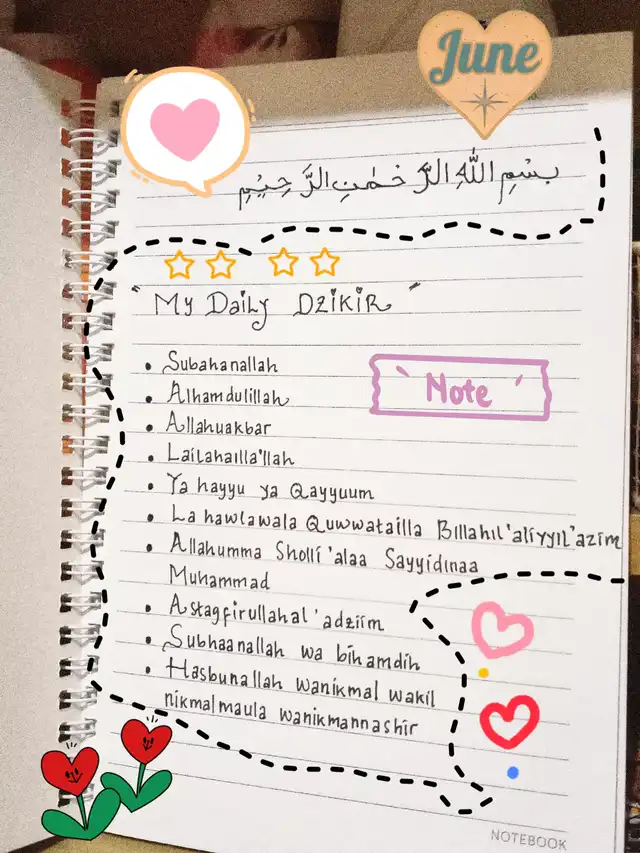 June
بِسْمِ اللّٰهِ الرَّحْمٰنِ الرَّحِيْمِ
" My Daily Dzikir "
• Subahanallah
' Note '
• Alhamdulillah
• Allahuakbar
• Lailahailla'llah
• Ya hayyu ya Qayyuum
• La hawlawala Quwwatailla Billahil'aliyyil'azim
• Allahumma Sholli 'alaa Sayyidinaa
Muhammad
• Astagfirullahal 'adziim
• Subhaanallah wa bihamdih
• Hasbunallah wanikmal wakil
nikmalmaula wanikmannashir
NOTEBOOK